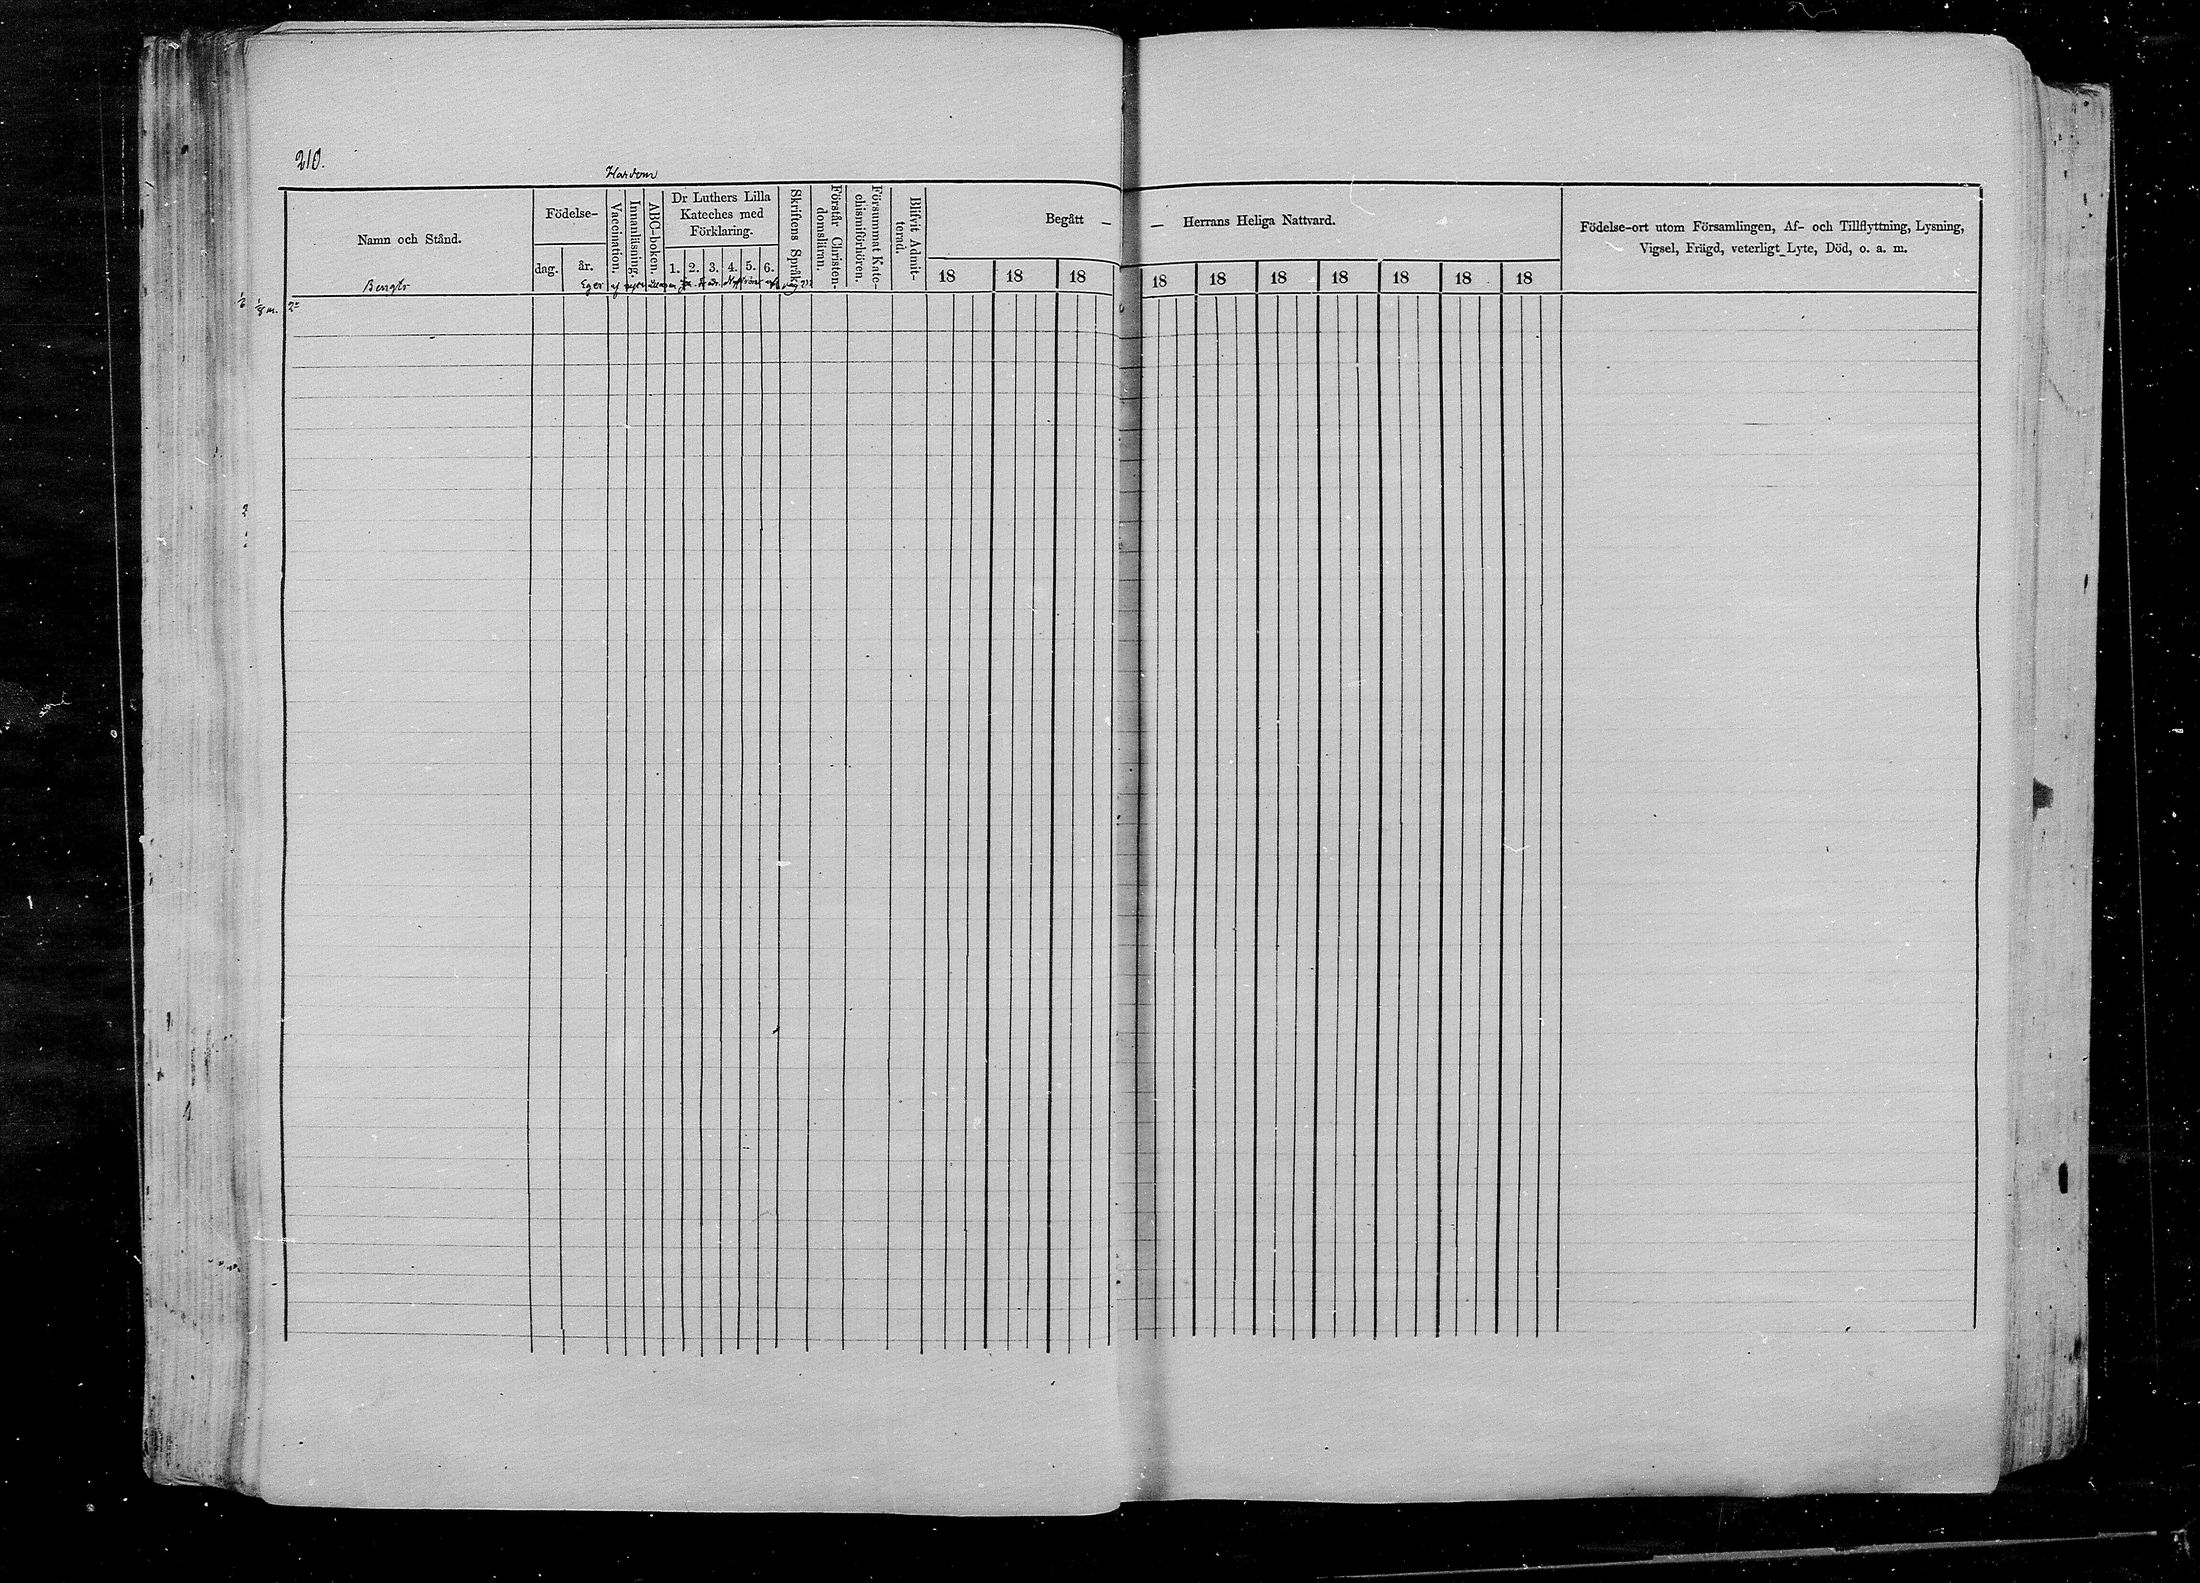 210.
Hardom
Namn och Stånd.
Födelse-
dag.
år.
Vaccination.
Innanläsning.
ABC-boken.
Dr Luthers Lilla
Kateches med
Förklaring.
1. 2. 3. 4. 5. 6.
Skriftens Språk.
Förstår Christen-
domsläran.
Försummat Kate-
chismiförhören.
Blifvit Admit-
terad.
Begått — — Herrans Heliga Nattvard.
18 18 18 18 18 18 18 18 18 18
Födelse-ort utom Församlingen, Af- och Tillflyttning, Lysning,
Vigsel, Frägd, veterligt Lyte, Död, o. a. m.
Eger ej
1/6 1/8 m.